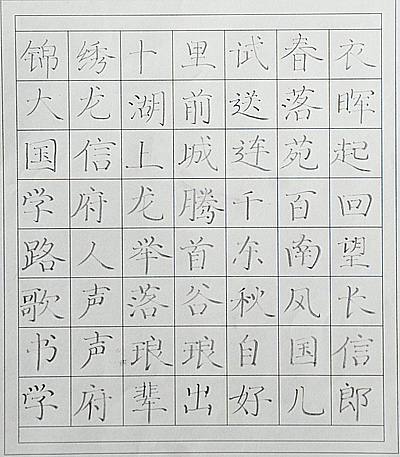 锦绣十里试春衣
大龙湖前送落晖
国信上城连苑起
学府龙腾千百回
路人举首东南望
歌声落谷秋风长
书声琅琅自国信
学府辈出好儿郎